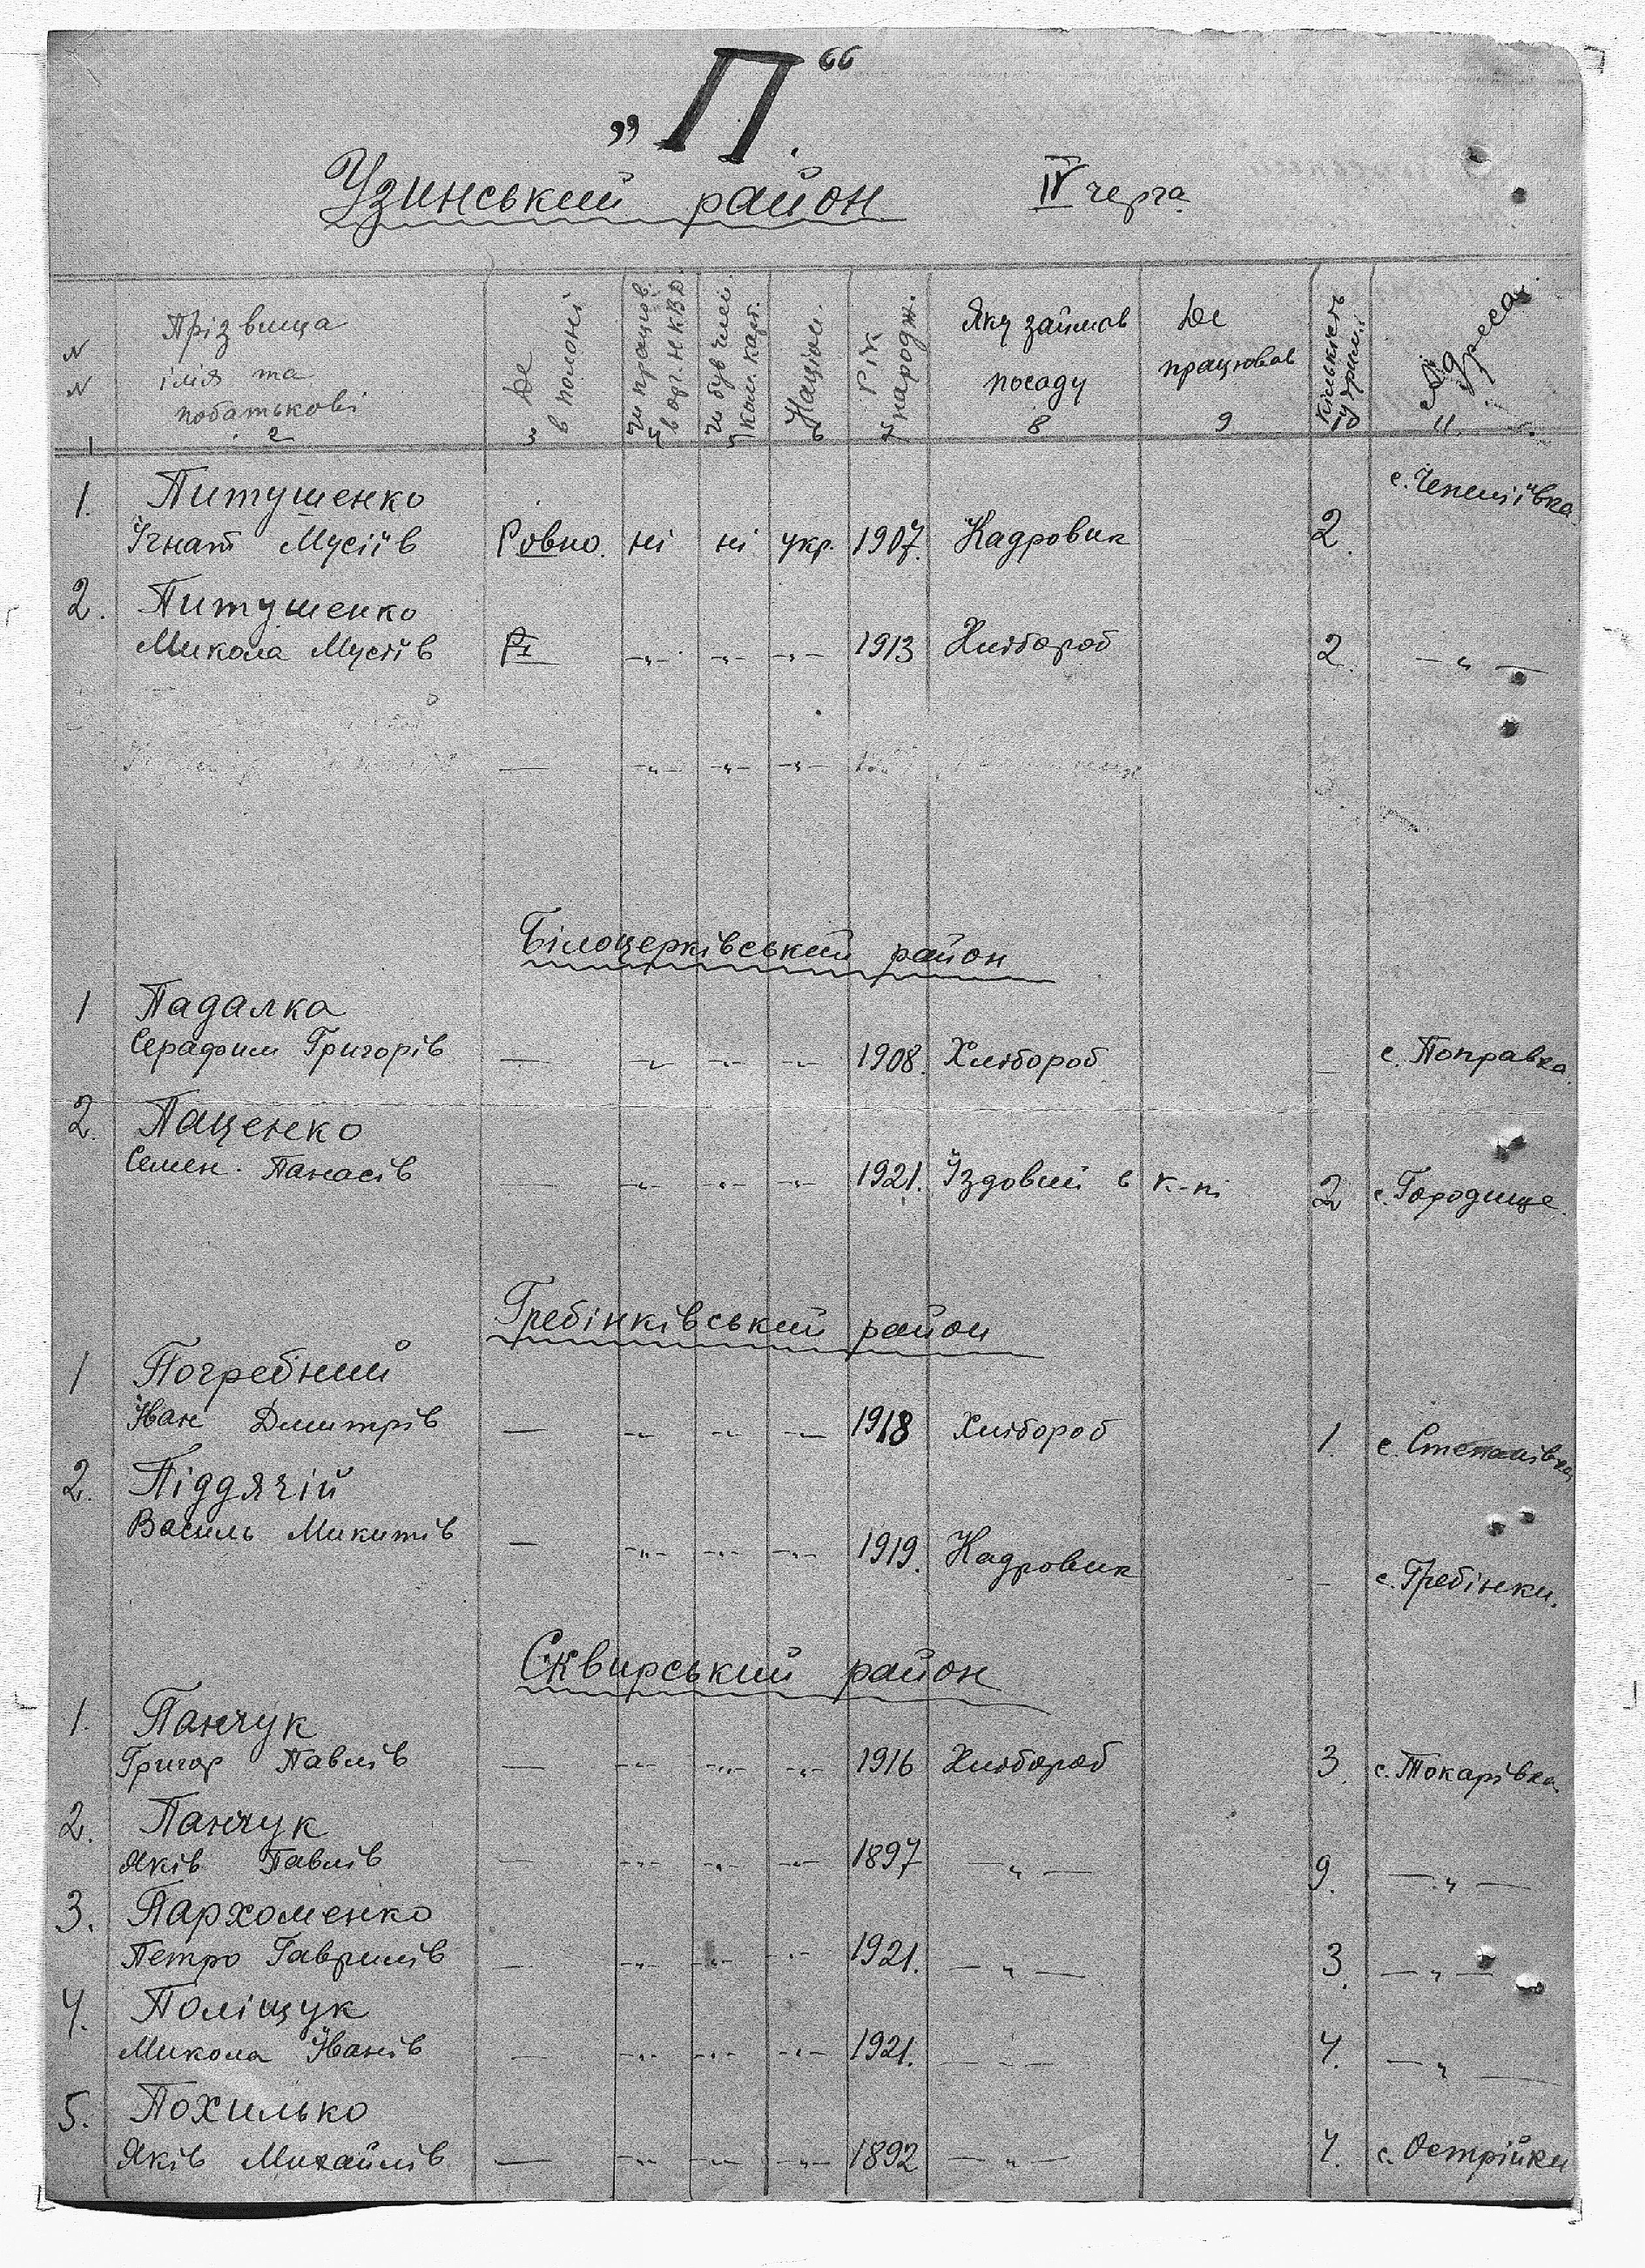 „П“
Узинський район IV черга
N N Прізвища імія та побатькові Де в полоні Чи працюв. в орг. НКВД. Чи був член. ком. парт. Націон. Рік народж. Яку займав посаду Де працював Кількість утрим. Адреса
1 2 3 4 5 6 7 8 9 10 11
1. Питушенко с. Чепеліївка.
Ігнат Мусіїв Ровно. ні ні укр. 1907. Кадровик 2.
2. Питушенко
Микола Мусіїв —„— —„— —„— 1913 Хлібороб 2. —„—
— —„— —„— —„—
Білоцерківський район
1 Падалка
Серафим Григорів — —„— —„— —„— 1908. Хлібороб — с. Поправка.
2. Паценко
Семен. Панасів — —„— —„— —„— 1921. Їздовий в к-пі 2 с. Городище.
Гребінківський район
1 Погребний
Іван Дмитрів — —„— —„— —„— 1918 Хлібороб 1. с. Степанівка
2. Піддячій
Василь Микитів — —„— —„— —„— 1919. Кадровик — с. Гребінки.
Сквирський район
1. Панчук
Григор Павлів — —„— —„— —„— 1916 Хлібороб 3. с. Токарівка
2. Панчук
Яків Павлів — —„— —„— —„— 1897 —„— 9. —„—
3. Пархоменко
Петро Гаврилів — —„— —„— —„— 1921. —„— 3. —„—
4. Поліщук
Микола Іванів — —„— —„— —„— 1921. —„— 4. —„—
5. Похилько
Яків Михайлів — —„— —„— —„— 1892 —„— 4. с. Острійки